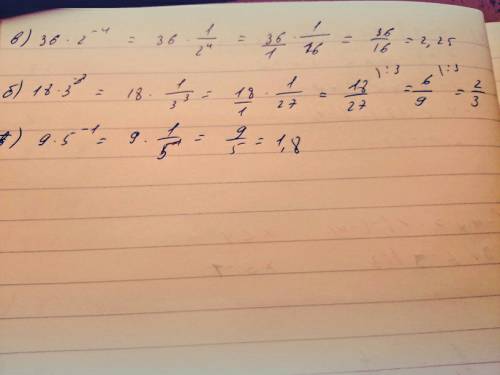 в) 36 · 2⁻⁴ = 36 · 1/2⁴ = 36/1 · 1/16 = 36/16 = 2,25
б) 18 · 3⁻³ = 18 · 1/3³ = 18/1 · 1/27 = 18/27 \:3 = 6/9 \:3 = 2/3
) 9 · 5⁻¹ = 9 · 1/5¹ = 9/5 = 1,8